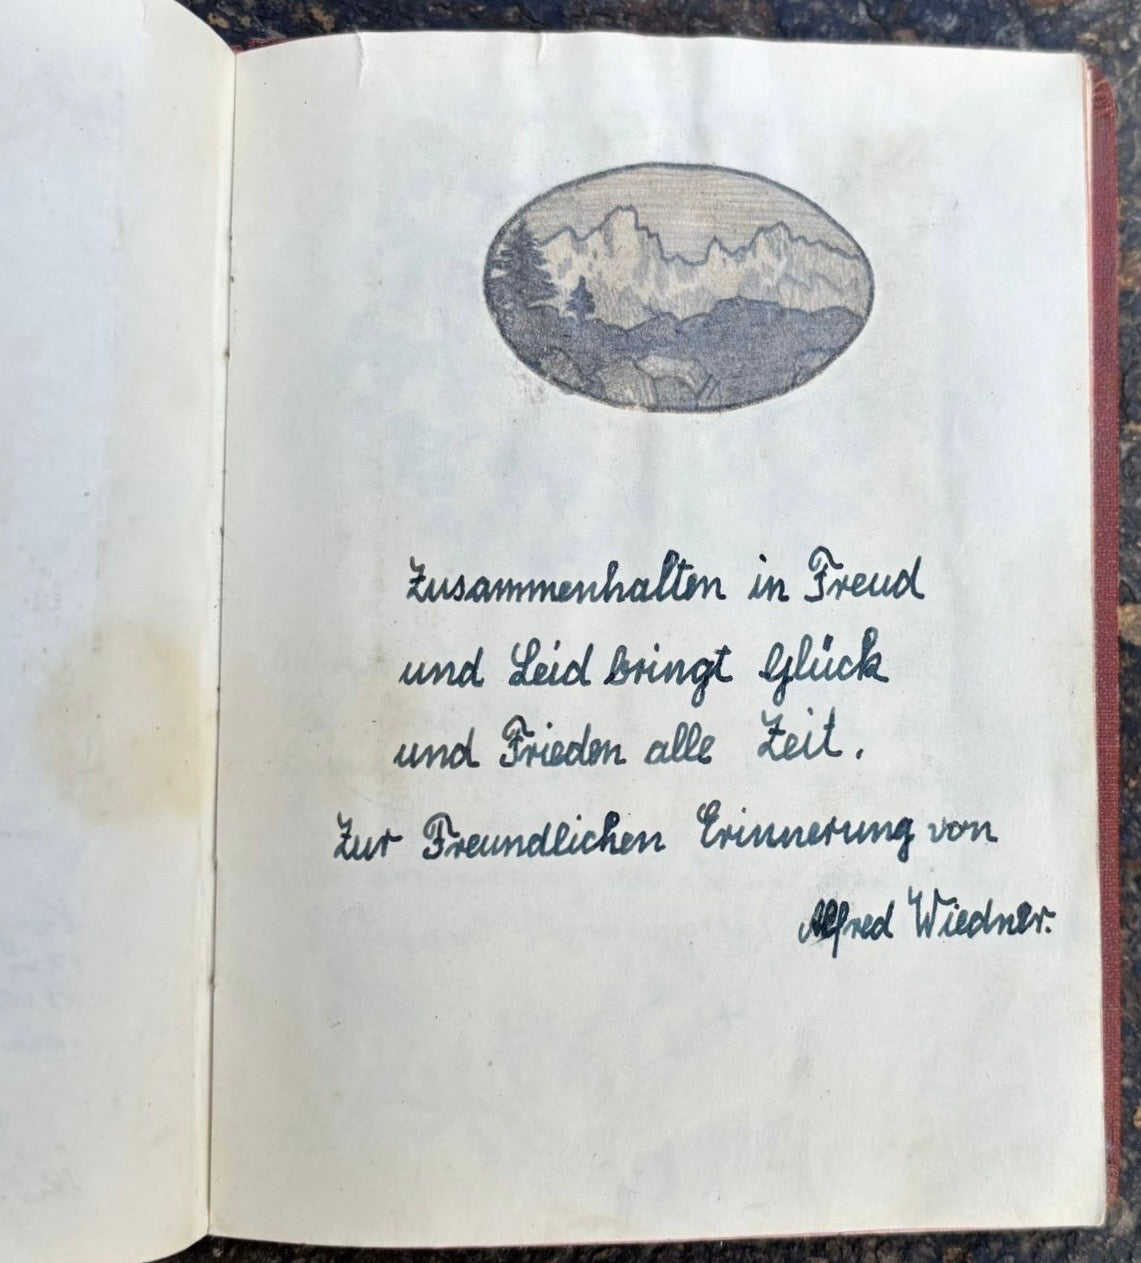 Zusammenhalten in Freud
und Leid bringt Glück
und Frieden alle Zeit.
Zur Freundlichen Erinnerung von
Alfred Wiedner.